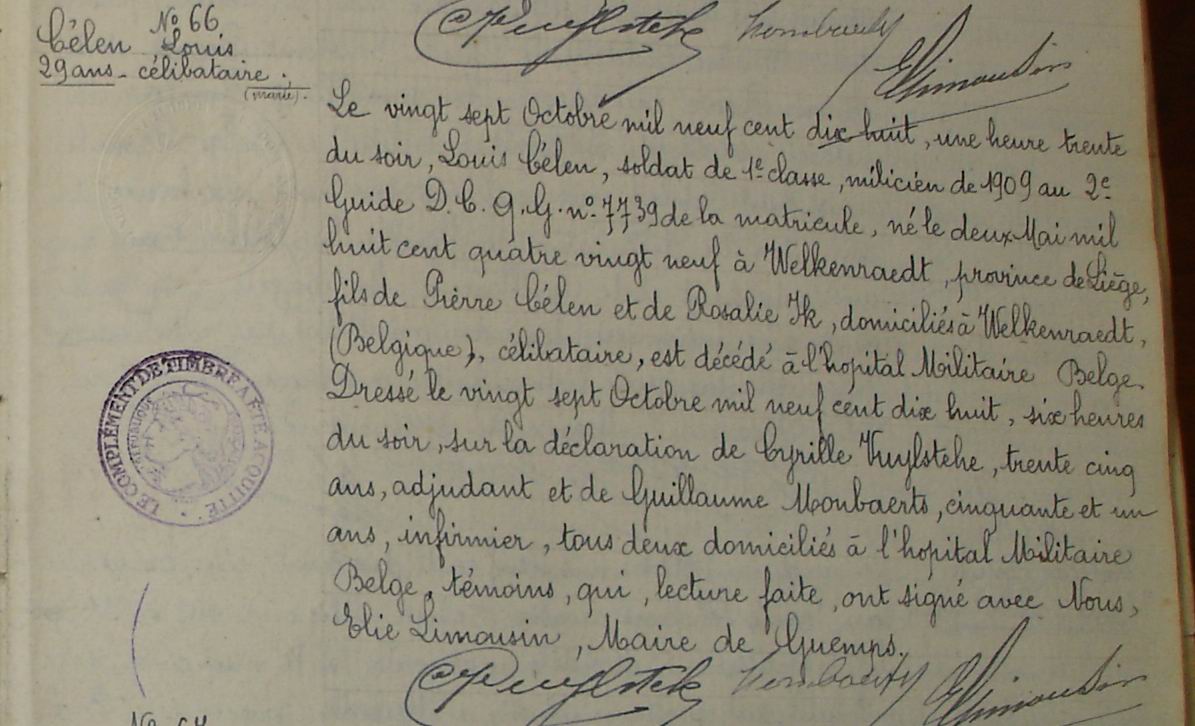 Nº 66
Célen Louis
29 ans - célibataire.
(marié).
Le vingt sept Octobre mil neuf cent dix huit, une heure trente
du soir, Louis Célen, soldat de 1e classe, milicien de 1909 au 2e
Guide D.C. G.G. nº 7739 de la matricule, né le deux Mai mil
huit cent quatre vingt neuf à Welkenraedt, province de Liège,
fils de Pierre Célen et de Rosalie Ik, domiciliés à Welkenraedt,
(Belgique), célibataire, est décédé à l'hopital Militaire Belge.
Dressé le vingt sept Octobre mil neuf cent dix huit, six heures
du soir, sur la déclaration de Cyrille Vuylsteke, trente cinq
ans, adjudant et de Guillaume Monbaerts, cinquante et un
ans, infirmier, tous deux domiciliés à l'hopital Militaire
Belge, témoins, qui, lecture faite, ont signé avec Nous,
Elie Limousin, Maire de Guemps.
LE COMPLÉMENT DE TIMBRE A ÉTÉ ACQUITTÉ